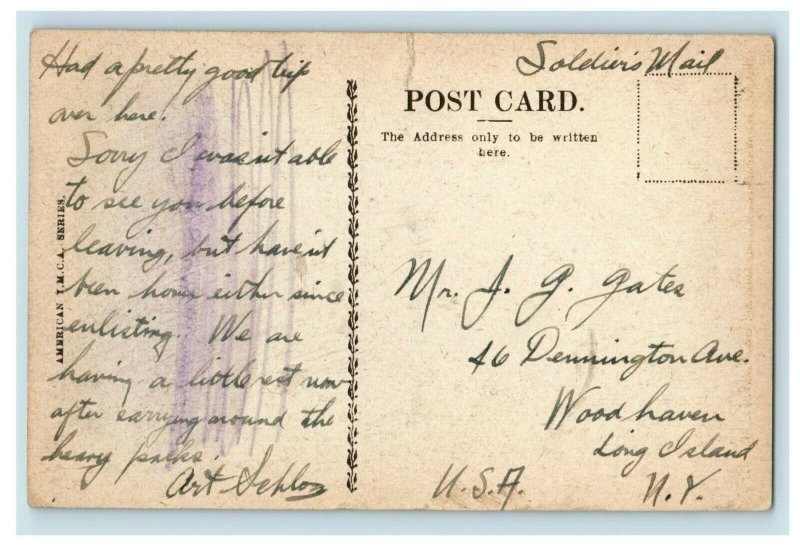 Had a pretty good trip
over here.
Sorry I wasn't able
to see you before
leaving, but haven't
been home either since
enlisting. We are
having a little rest now
after carrying around the
heavy packs.
Art Schloz
AMERICAN Y.M.C.A. SERIES.
Soldier's Mail
POST CARD.
The Address only to be written
here.
Mr. J. G. Gates
46 Dennington Ave.
Woodhaven
Long Island
U.S.A. N.Y.